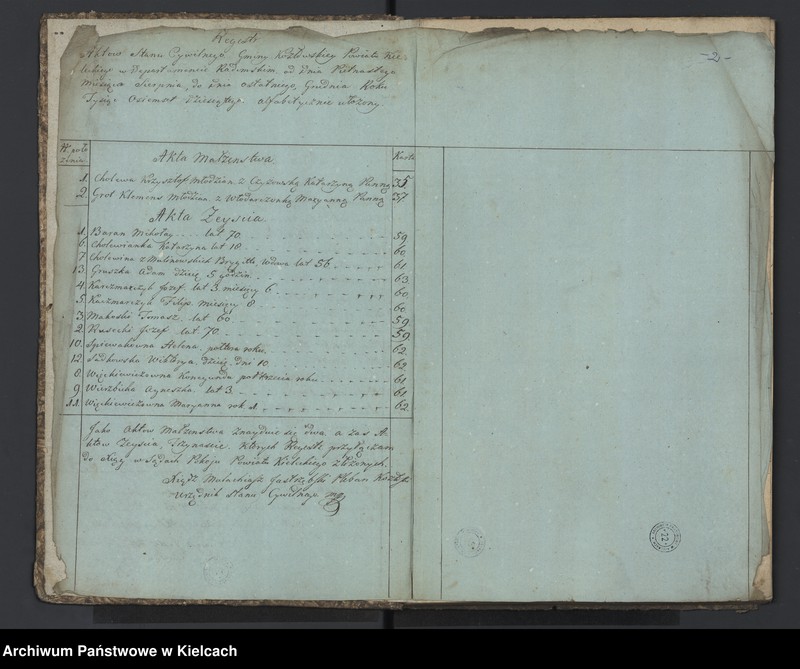 Regestr
Aktow Stanu Cywilnego Gminy Kozłowskiey Powiatu Kie-
leckiego w Departamencie Radomskim od dnia Piętnastego
Miesiąca Sierpnia do dnia ostatniego Grudnia Roku
Tysiąc Osiemset dziesiątego alfabetycznie ułożony
-2-
N. poło
żenia
Akta Małzenstwa
Karta
1. Cholewa Krzysztof Młodzian z Czyżowską Katarzyną Panną 35.
2. Grot Klemens Młodzian z Włodarczonką Maryanną Panną 37.
Akta Zeyscia
1. Baran Mikołay lat 70 59
6. Cholewianka Katarzyna lat 18 60
7. Cholewina z Malinowskich Brygitta Wdowa lat 56 61
13. Gruszka Adam dziecię 5 godzin 63
4. Karczmarczyk Jozef lat 3 miesięcy 6 60
5. Kaczmarczyk Filip miesięcy 8 60
3. Makoski Tomasz lat 60 59
2. Rusecki Jozef lat 70 59
10. Helena połtora roku 62
12. Sadkowska Wiktorya dziecię dni 10 62
8. Więckiewiczowna Kunegunda połtrzecia roku 61
9. Wierzbicka Agneszka lat 3 61
11. Więckiewiczowna Maryanna rok 1 62
Jako Aktow Małzenstwa znayduie się dwa a zas A-
ktow Zeyscia Trzynascie ktorych Regestr przyłączam
do Xiąg w Sądach Pokoju Powiatu Kieleckiego złożonych.
Xiądz Małachiasz Jastrzębski Pleban
Urzędnik Stanu Cywilnego
22
Archiwum Państwowe w Kielcach